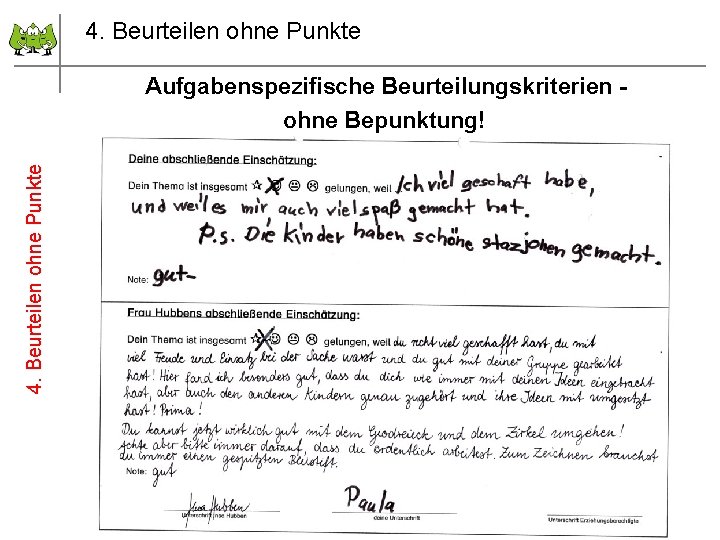 4. Beurteilen ohne Punkte
Aufgabenspezifische Beurteilungskriterien -
ohne Bepunktung!
4. Beurteilen ohne Punkte
Deine abschließende Einschätzung:
Dein Thema ist insgesamt ☆ ☺ 😐 ☹ gelungen, weil Ich viel geschaft habe,
und weil es mir auch viel spaß gemacht hat.
P.S. Die kinder haben schöne stazjohen gemacht.
Note: gut-
Frau Hubbens abschließende Einschätzung:
Dein Thema ist insgesamt ☆ ☺ 😐 ☹ gelungen, weil du recht viel geschafft hast, du mit
viel Freude und Einsatz bei der Sache warst und du gut mit deiner Gruppe gearbeitet
hast! Hier fand ich besonders gut, dass du dich wie immer mit deinen Ideen eingebracht
hast, aber auch den anderen Kindern genau zugehört und ihre Ideen mit umgesetzt
hast! Prima!
Du kannst jetzt wirklich gut mit dem Geodreieck und dem Zirkel umgehen!
Achte aber bitte immer darauf, dass du ordentlich arbeitest. Zum Zeichnen brauchst
du immer einen gespitzten Bleistift.
Note: gut
Hubben
Paula
Unterschrift Hubben
deine Unterschrift
Unterschrift Erziehungsberechtigte